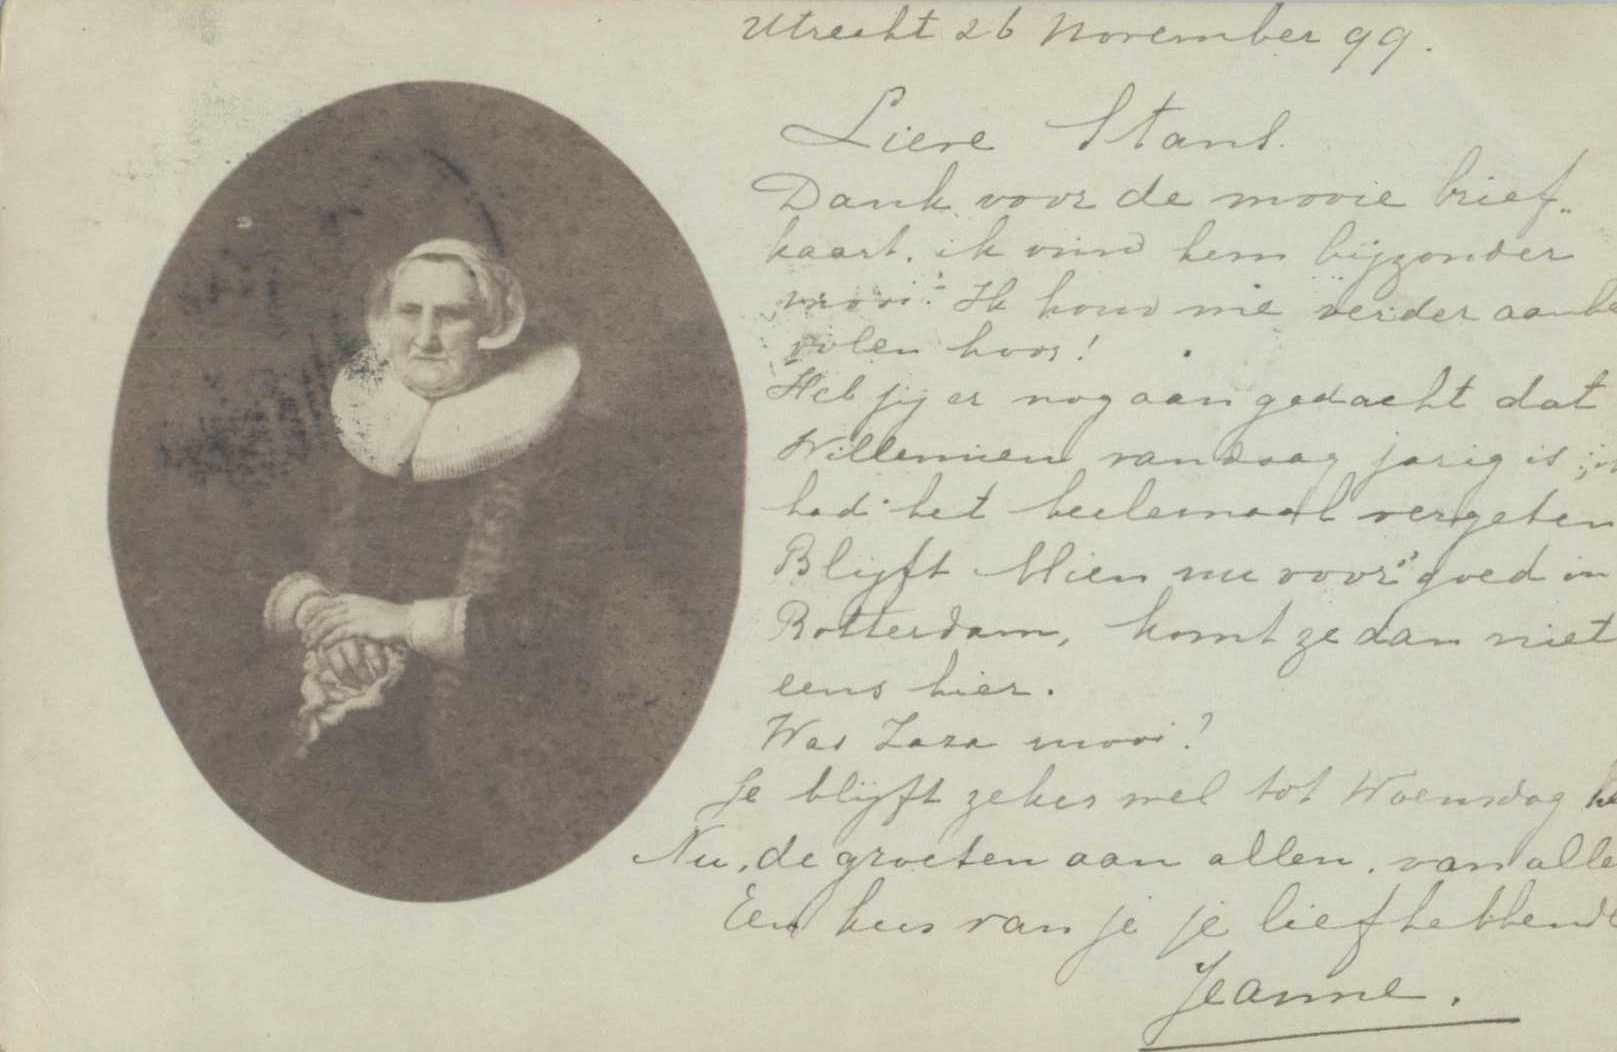 Utrecht 26 November 99.
Lieve Stans.
Dank voor de mooie brief„
kaart. ik vind hem bijzonder
mooi! Ik houd me verder aanbe
volen hoor!
Heb jij er nog aan gedacht dat
Willemien vandaag jarig is;
had het heelemaal vergeten
Blijft Mien nu voor goed in
Rotterdam, komt ze dan niet
eens hier.
Was Zaza mooi?
Je blijft zeker wel tot Woensdag
Nu, de groeten aan allen. van alle
Een kus van je je liefhebbende
Jeanne.